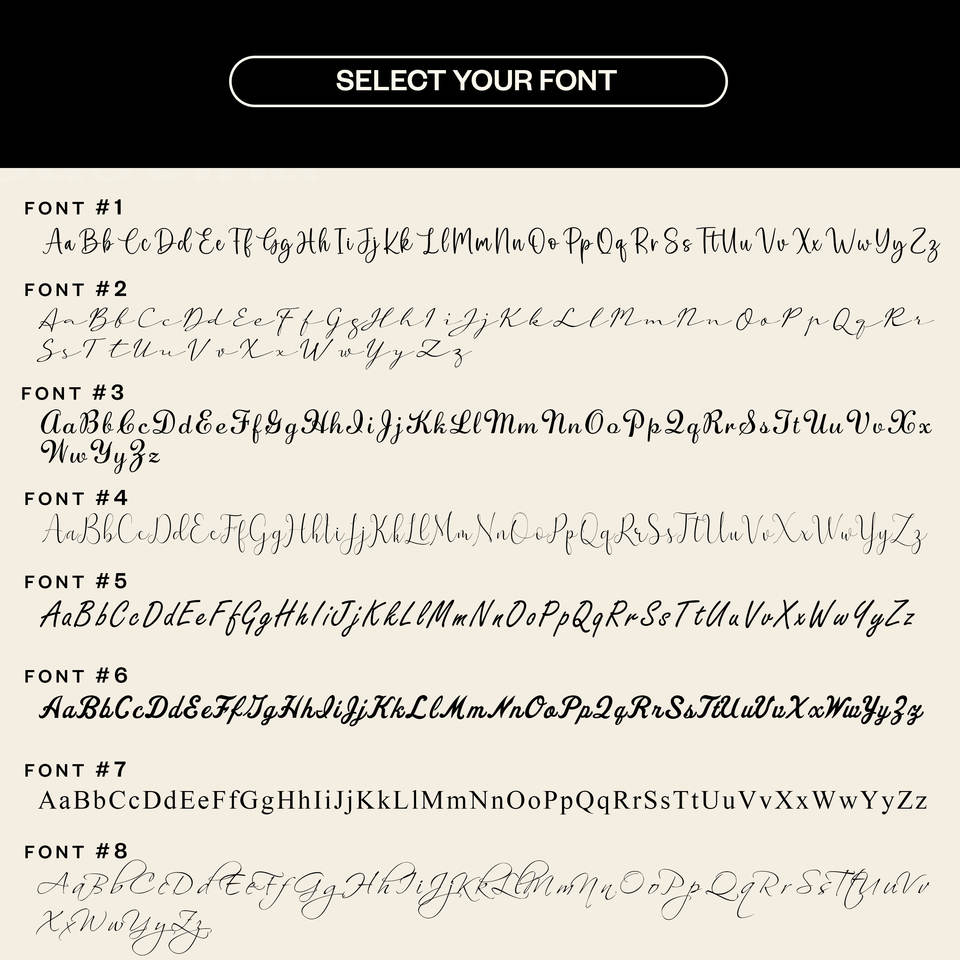 SELECT YOUR FONT
FONT #1
Aa Bb Cc Dd Ee Ff Gg Hh Ii Jj Kk Ll Mm Nn Oo Pp Qq Rr Ss Tt Uu Vv Xx Ww Yy Zz
FONT #2
Aa Bb Cc Dd Ee Ff Gg Hh Ii Jj Kk Ll Mm Nn Oo Pp Qq Rr
Ss Tt Uu Vv Xx Ww Yy Zz
FONT #3
AaBbCcDdEeFfGgHhIiJjKkLlMmNnOoPpQqRrSsTtUuVvXx
WwYyZz
FONT #4
AaBbCcDdEeFfGgHhIiJjKkLlMmNnOoPpQqRrSsTtUuVvXxWwYyZz
FONT #5
AaBbCcDdEeFfGgHhIiJjKkLlMmNnOoPpQqRrSsTtUuVvXxWwYyZz
FONT #6
AaBbCcDdEeFfGgHhIiJjKkLlMmNnOoPpQqRrSsTtUuVvXxWwYyZz
FONT #7
AaBbCcDdEeFfGgHhIiJjKkLlMmNnOoPpQqRrSsTtUuVvXxWwYyZz
FONT #8
AaBbCcDdEeFfGgHhIiJjKkLlMmNnOoPpQqRrSsTtUuVv
XxWwYyZz